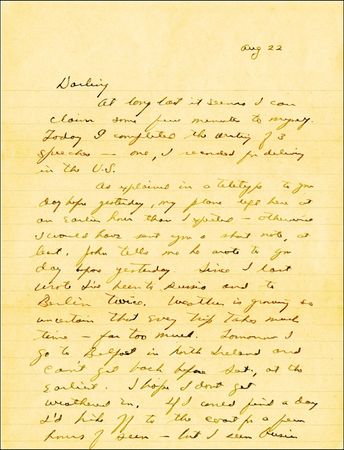 Aug 22
Darling
At long last it seems I can
claim some few minutes to myself.
Today I completed the writing of 3
speeches — one, I recorded for delivery
in the U.S.
As explained in a teletype to you
day before yesterday, my plane left here at
an earlier hour than I expected – otherwise
I would have sent you a short note, at
least. John tells me he wrote to you
day before yesterday. Since I last
wrote I've been to Russia and to
Berlin twice. Weather is growing so
uncertain that every trip takes much
time – far too much. Tomorrow I
go to Belfast in North Ireland and
can't get back before Sat., at the
earliest. I hope I don't get
weathered in. If I could find a day
I'd hike off to the coast for a few
hours of – but I seem